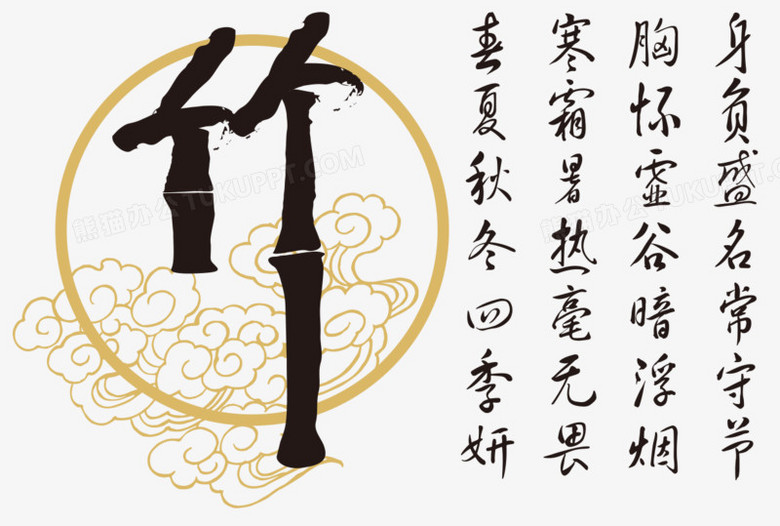 竹
身负盛名常守节
胸怀虚谷暗浮烟
寒霜暑热毫无畏
春夏秋冬四季妍
熊猫办公 TUKUPPT.COM